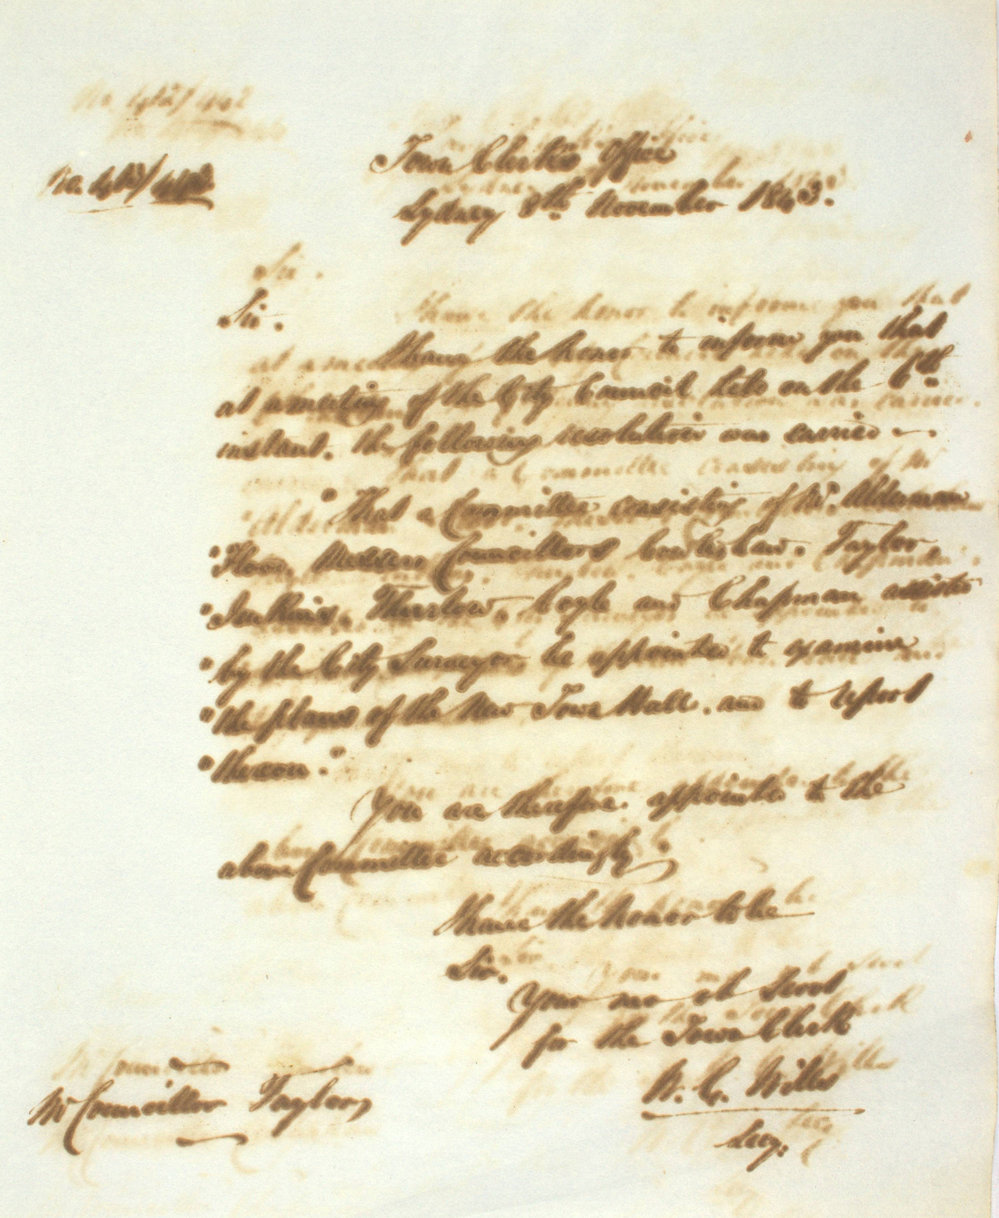 Town Clerk's Office
Sydney 8th November 1843.
Sir.
I have the honor to inform you that
at a meeting of the City Council held on the 6th
instant. the following resolution was carried —
"That a Committee consisting of Mr. Alderman
"Flood, Messrs Councillors Taylor
"Jenkins, Thurlow, Coyle and Chapman assisted
"by the City Surveyor be appointed to examine
"the plans of the New Town Hall. and to report
"thereon."
You are therefore appointed to the
above Committee accordingly
I have the honor to be
Sir.
Your mo ob Servt
for the Town Clerk
Mr Councillor Taylor